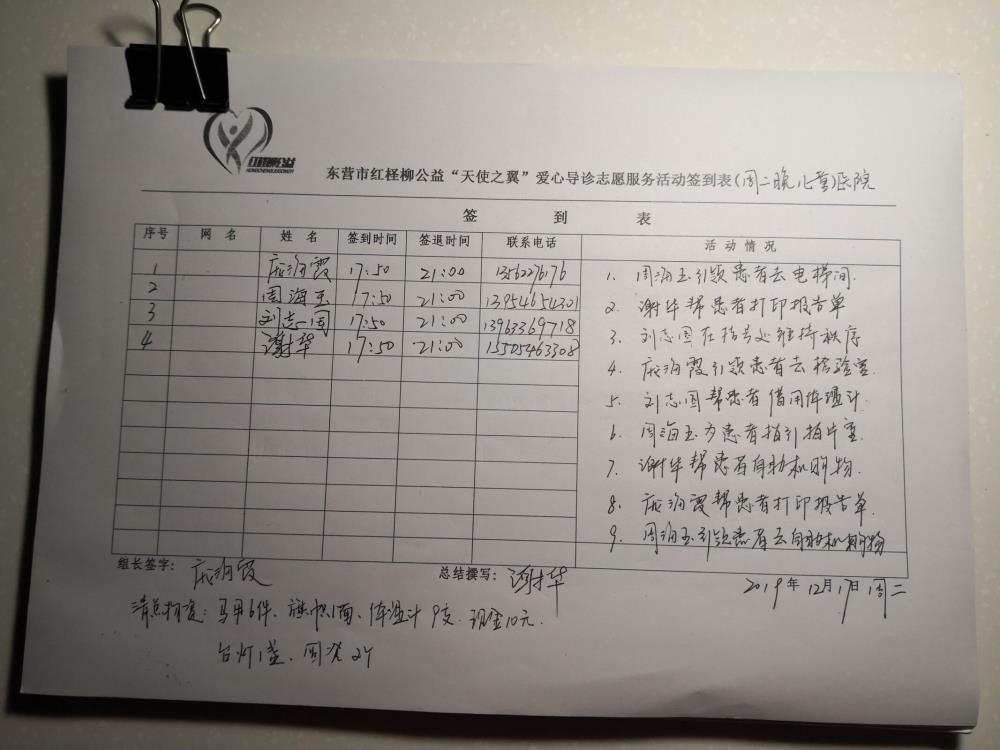 红柽柳公益
HONGCHENGLIUGONGYI
东营市红柽柳公益“天使之翼”爱心导诊志愿服务活动签到表(周二晚儿童医院
签 到 表
序号 网名 姓名 签到时间 签退时间 联系电话 活动情况
1 17:50 21:00 13562276176
2 周海玉 17:50 21:00 13954654301
3 刘志国 17:50 21:00 13963369718
4 谢华 17:50 21:00 15505463308
1. 周海玉引领患者去电梯间.
2. 谢华帮患者打印报告单
3. 刘志国在挂号处维持秩序
4. 霞引领患者去检验室.
5. 刘志国帮患者借用体温计.
6. 周海玉为患者指引拍片室.
7. 谢华帮患者自助机购物.
8. 霞帮患者打印报告单.
9. 周海玉引领患者去自助机购物
组长签字: 霞
总结撰写: 谢华
2019年12月17日周二
清点物资:马甲6件、旗帜1面、体温计9支.现金10元.
台灯1盏. 2个